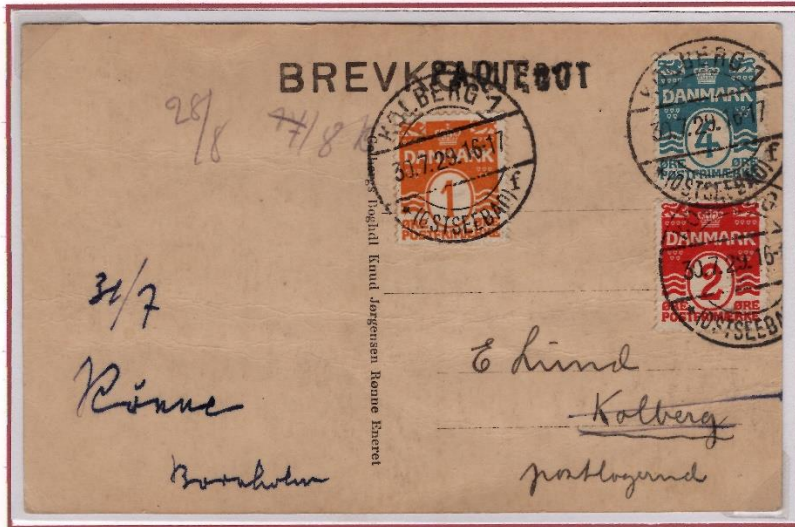 BREVKORT
PAQUEBOT
28/8
7/8
KOLBERG 1
30.7.29.16-17
* (OSTSEEBAD) f
DANMARK
1
ØRE ØRE
POSTFRIMÆRKE
KOLBERG 1
30.7.29.16-17
* (OSTSEEBAD) f
DANMARK
4
ØRE ØRE
POSTFRIMÆRKE
30.7.29.16-
* (OSTSEEBA
DANMARK
2
ØRE ØRE
POSTFRIMÆRKE
Colbergs Boghdl Knud Jørgensen Rønne Eneret
31/7
Rønne
Bornholm
E Lund
Kolberg
postlagernd